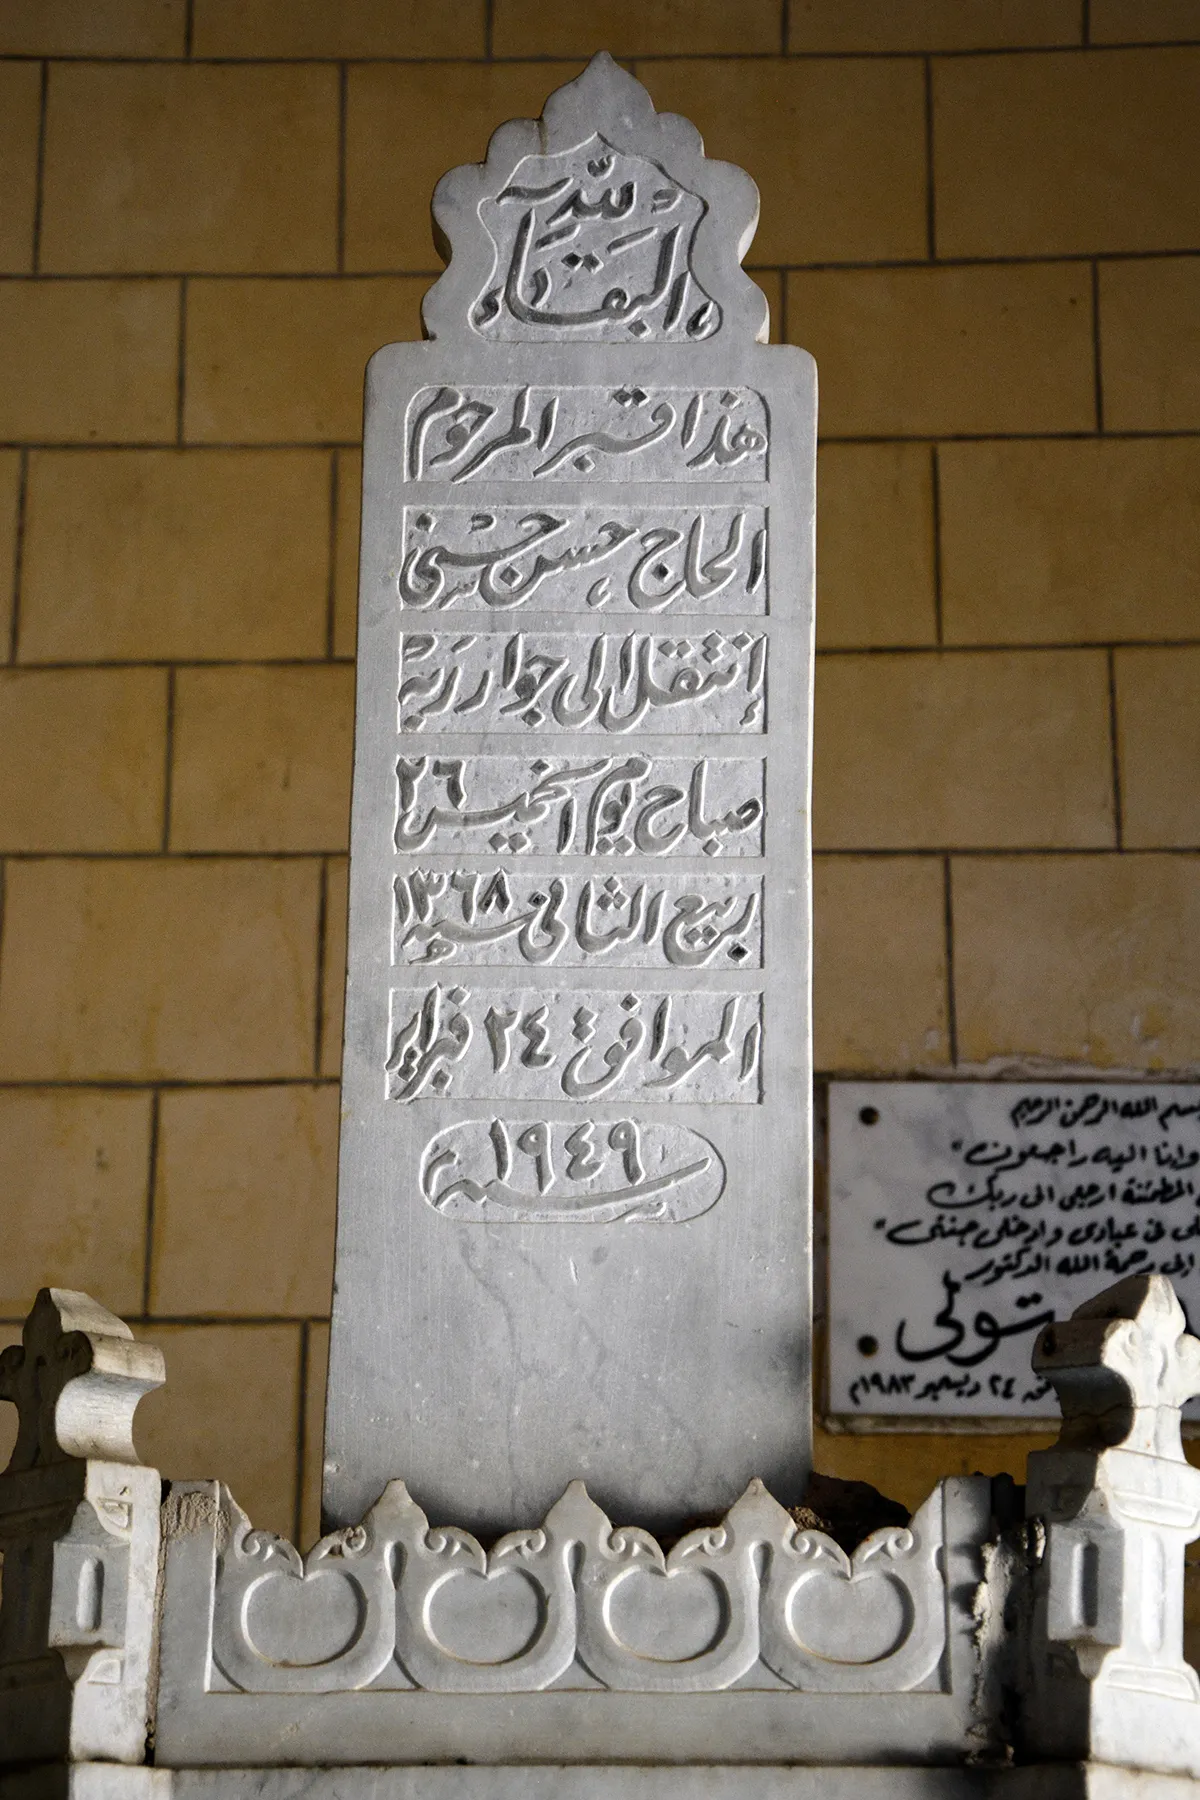 البقاء لله
هذا قبر المرحوم
الحاج حسن حسنى
إنتقل الى جوار ربه
صباح يوم الخميس ٢٦
ربيع الثانى سنة ١٣٦٨ ه
الموافق ٢٤ فبراير
سنة ١٩٤٩ م
بسم الله الرحمن الرحيم
وانا اليه راجعون"
المطمئنة ارجعى الى ربك
فى عبادى وادخلى جنتى"
الى رحمة الله الدكتور
متولى
٢٤ ديسمبر ١٩٨٣م